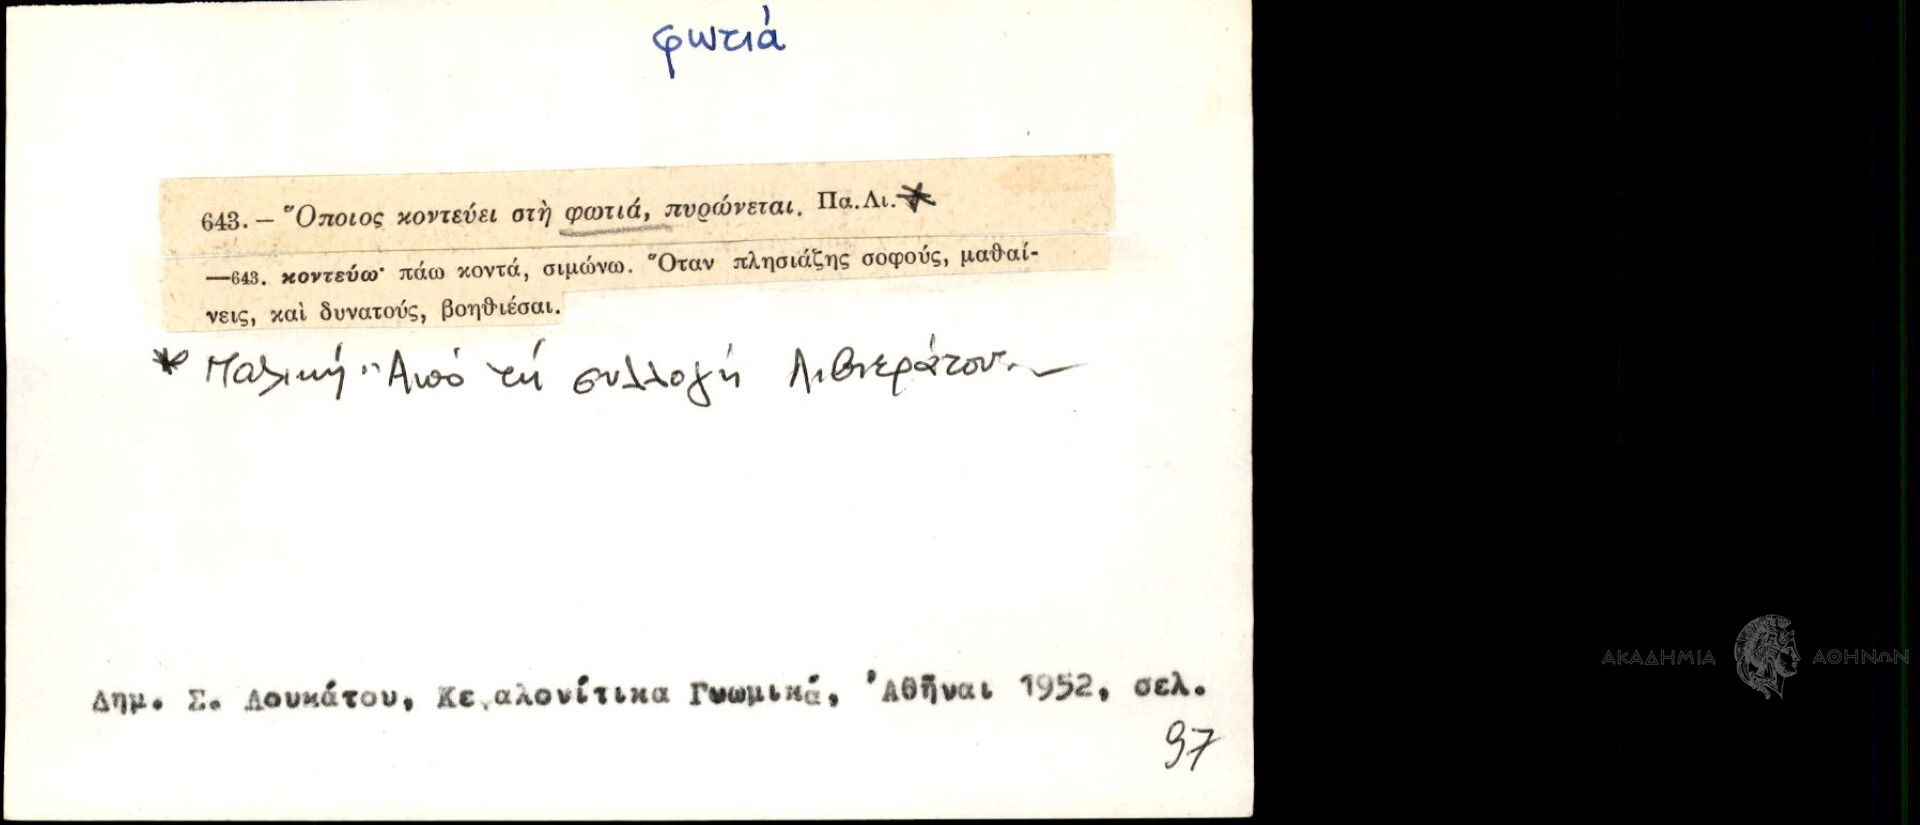 φωτιά
643. — Ὅποιος κοντεύει στὴ φωτιά, πυρώνεται. Πα.Λι.*
—643. κοντεύω· πάω κοντά, σιμώνω. Ὅταν πλησιάζης σοφούς, μαθαί-
νεις, καὶ δυνατούς, βοηθιέσαι.
* Παλική "Από τή συλλογή Λιβιεράτου"
Δημ. Σ. Λουκάτου, Κεφαλονίτικα Γνωμικά, Ἀθῆναι 1952, σελ.
97
ΑΚΑΔΗΜΙΑ ΑΘΗΝΩΝ